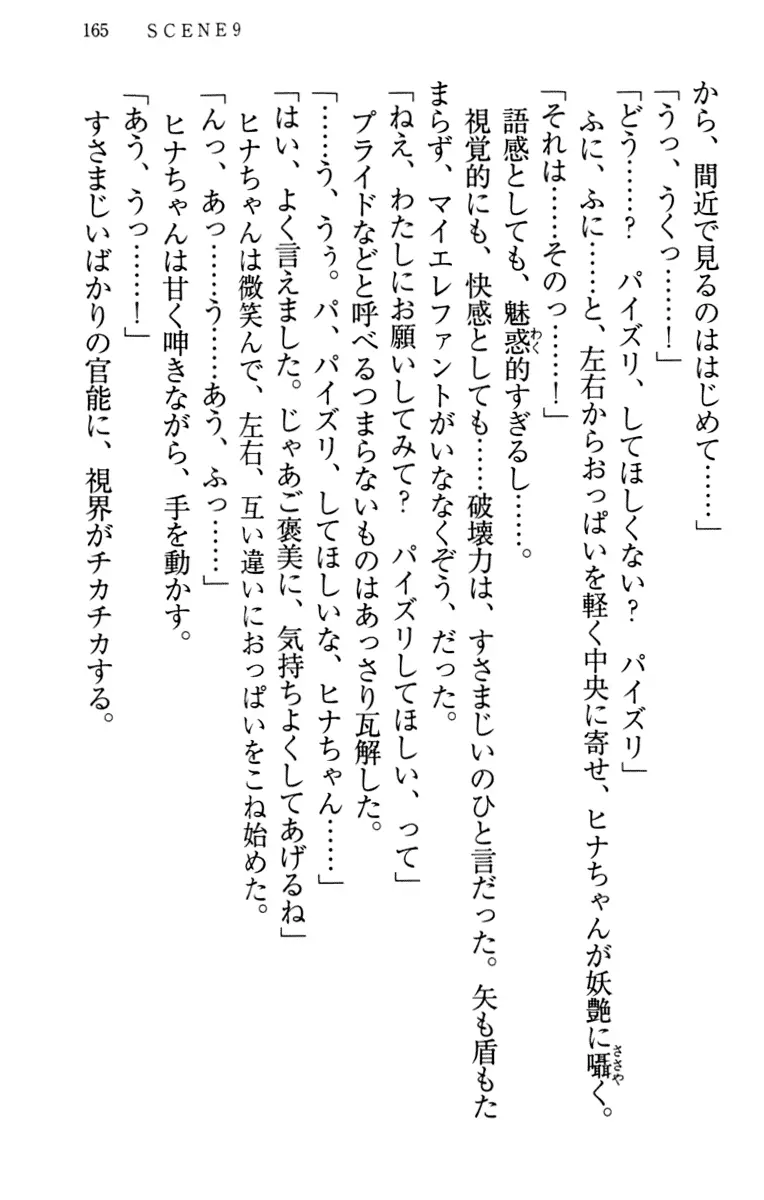 165 SCENE9
から、間近で見るのははじめて……」
「うっ、うくっ……！」
「どう……？　パイズリ、してほしくない？　パイズリ」
ふに、ふに……と、左右からおっぱいを軽く中央に寄せ、ヒナちゃんが妖艶に囁く。
「それは……そのっ……！」
語感としても、魅惑的すぎるし……。
視覚的にも、快感としても……破壊力は、すさまじいのひと言だった。矢も盾もた
まらず、マイエレファントがいななくぞう、だった。
「ねえ、わたしにお願いしてみて？　パイズリしてほしい、って」
プライドなどと呼べるつまらないものはあっさり瓦解した。
「……う、うぅ。パ、パイズリ、してほしいな、ヒナちゃん……」
「はい、よく言えました。じゃあご褒美に、気持ちよくしてあげるね」
ヒナちゃんは微笑んで、左右、互い違いにおっぱいをこね始めた。
「んっ、あっ……う……あう、ふっ……」
ヒナちゃんは甘く呻きながら、手を動かす。
「あう、うっ……！」
すさまじいばかりの官能に、視界がチカチカする。